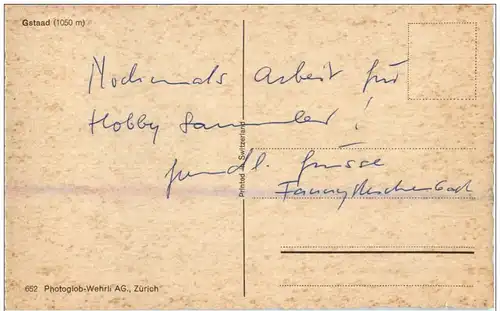 Gstaad (1050 m)
Nochmals Arbeit für
Hobby Sammler!
freundl. Grüsse
Fanny
Printed in Switzerland
652. Photoglob-Wehrli AG., Zürich